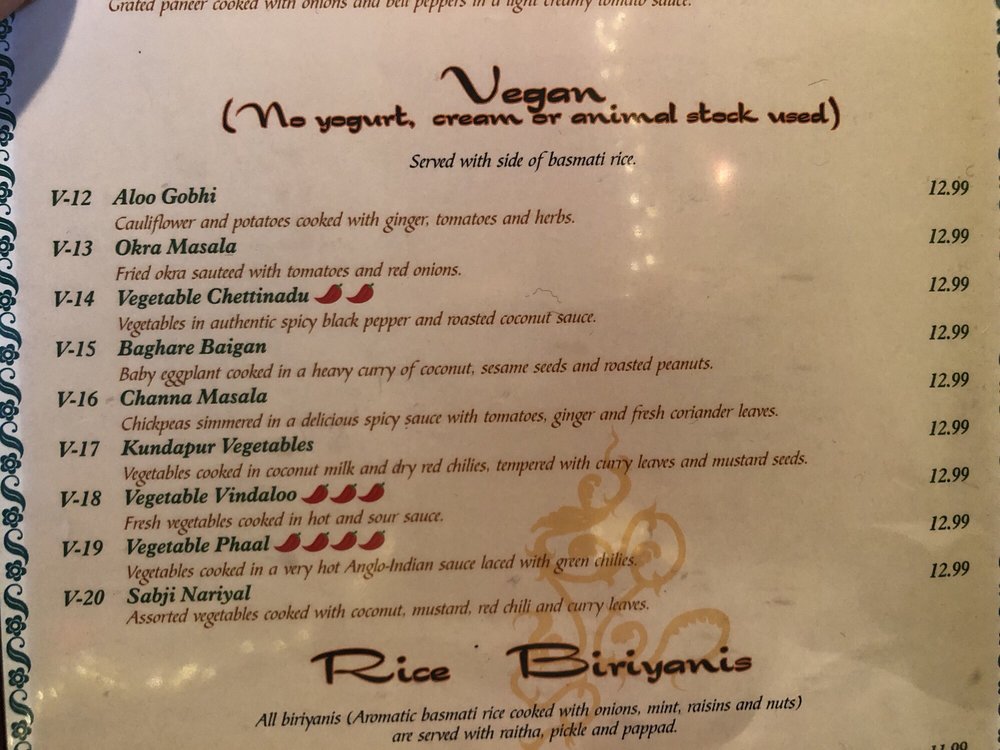 Grated paneer cooked with onions and bell peppers in a light creamy tomato sauce.
Vegan
(No yogurt, cream or animal stock used)
Served with side of basmati rice.
V-12 Aloo Gobhi 12.99
Cauliflower and potatoes cooked with ginger, tomatoes and herbs.
V-13 Okra Masala 12.99
Fried okra sauteed with tomatoes and red onions.
V-14 Vegetable Chettinadu 12.99
Vegetables in authentic spicy black pepper and roasted coconut sauce.
V-15 Baghare Baigan 12.99
Baby eggplant cooked in a heavy curry of coconut, sesame seeds and roasted peanuts.
V-16 Channa Masala 12.99
Chickpeas simmered in a delicious spicy sauce with tomatoes, ginger and fresh coriander leaves.
V-17 Kundapur Vegetables 12.99
Vegetables cooked in coconut milk and dry red chilies, tempered with curry leaves and mustard seeds.
V-18 Vegetable Vindaloo 12.99
Fresh vegetables cooked in hot and sour sauce.
V-19 Vegetable Phaal 12.99
Vegetables cooked in a very hot Anglo-Indian sauce laced with green chilies.
V-20 Sabji Nariyal 12.99
Assorted vegetables cooked with coconut, mustard, red chili and curry leaves.
Rice Biriyanis
All biriyanis (Aromatic basmati rice cooked with onions, mint, raisins and nuts)
are served with raitha, pickle and pappad.